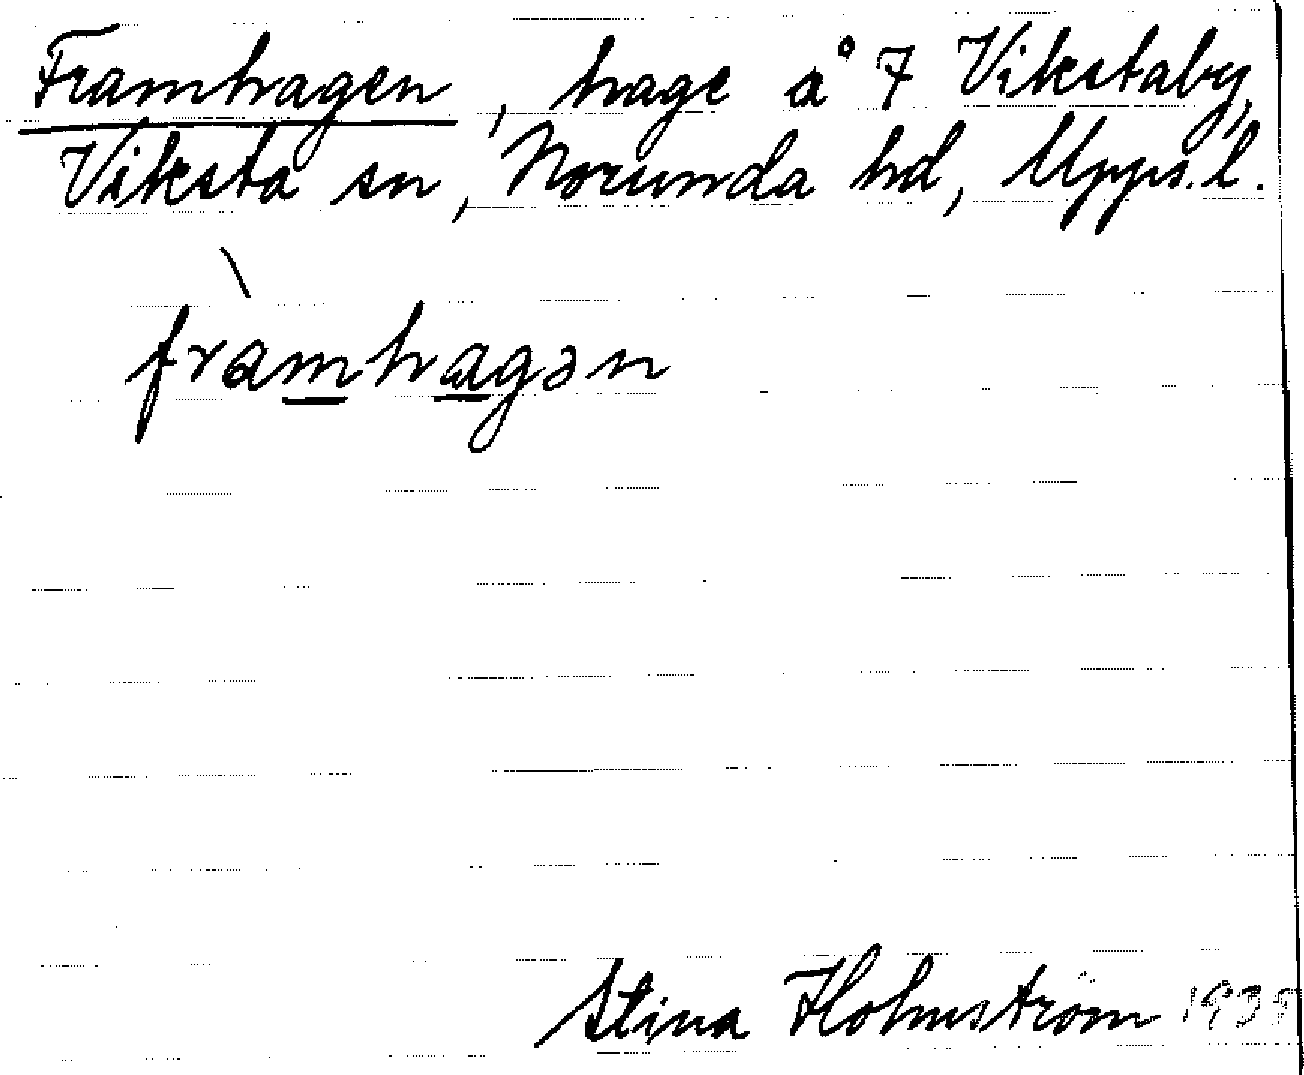 Framhagen, hage å 7 Vikstaby,
Viksta sn, Norunda hd, Upps. l.
fràmhagən
Stina Holmström 1938